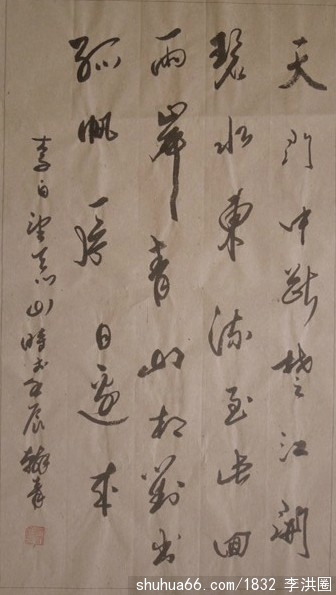 天门中断楚江開
碧水東流至此回
兩岸青山相對出
孤帆一片日邊来
李白望天山時於壬辰
shuhua66.com/1832 李洪圈